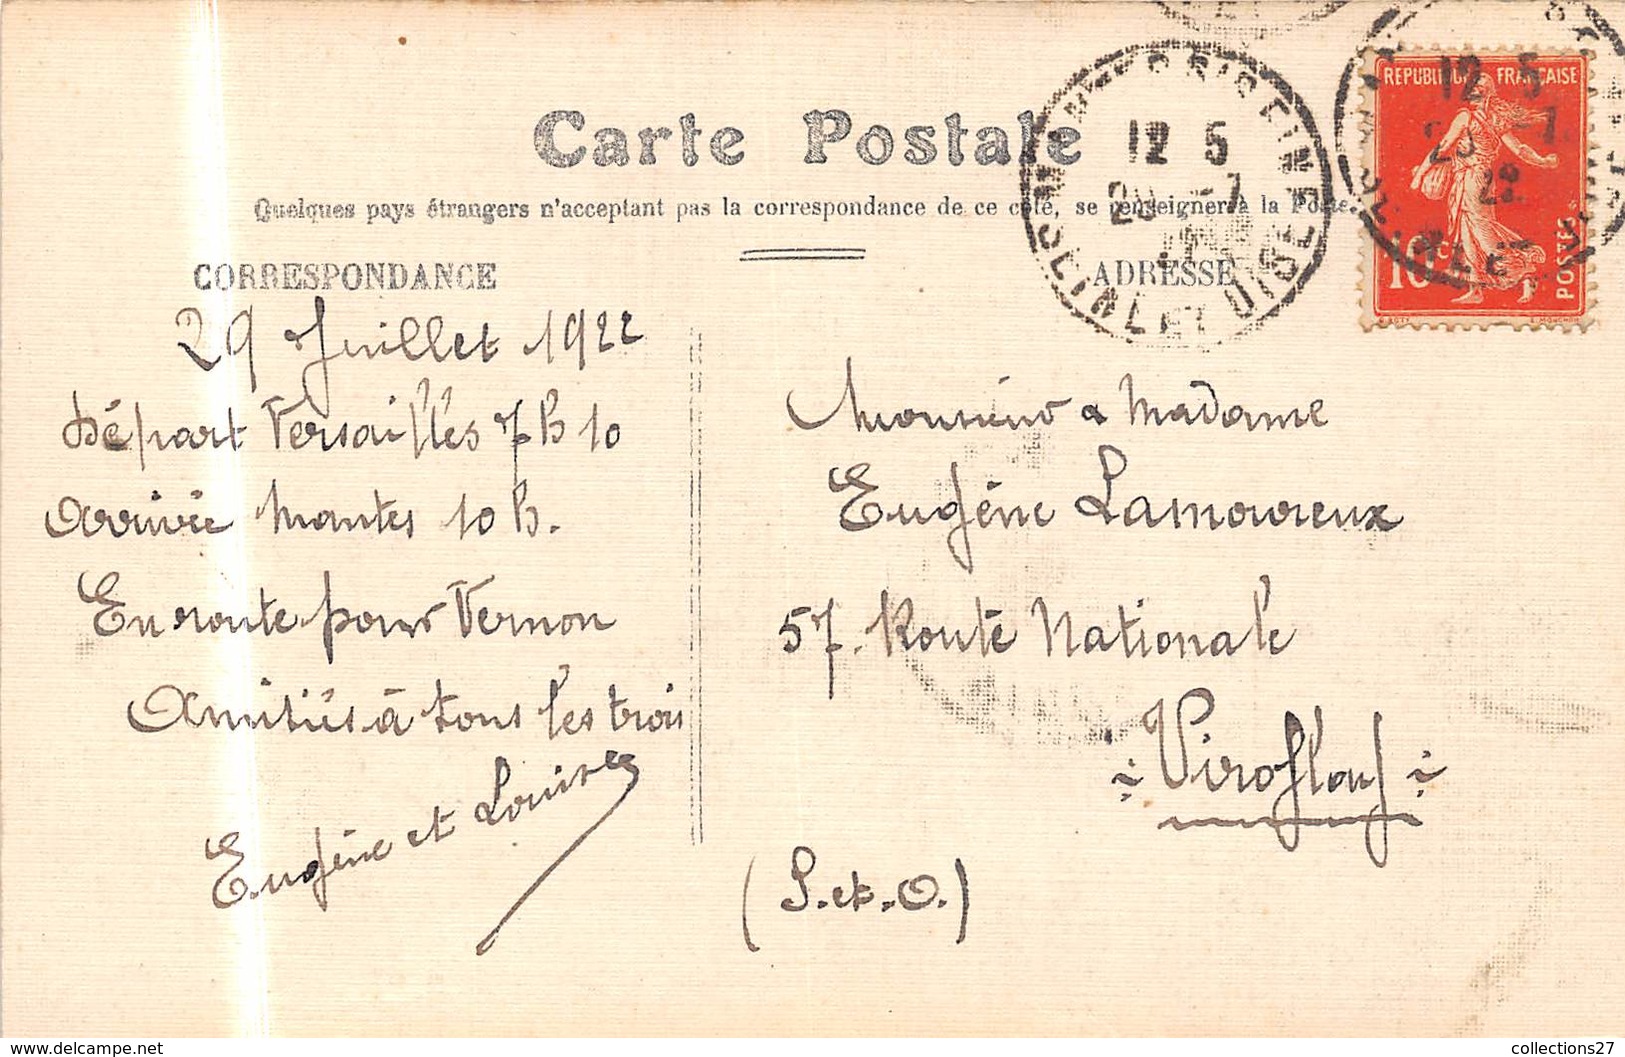 Carte Postale
Quelques pays étrangers n'acceptant pas la correspondance de ce côté, se renseigner à la Poste.
CORRESPONDANCE
29 Juillet 1922
Départ Versailles 7h10
Arrivée Mantes 10h.
En route pour Vernon
Amitiés à tous les trois
Eugène et Louise
ADRESSE
Monsieur & Madame
Eugène Lamoureux
57. Route Nationale
Viroflay
(S.et.O.)
RÉPUBLIQUE FRANÇAISE
10c
POSTES
12 5
-7
12 5
-7
collections27